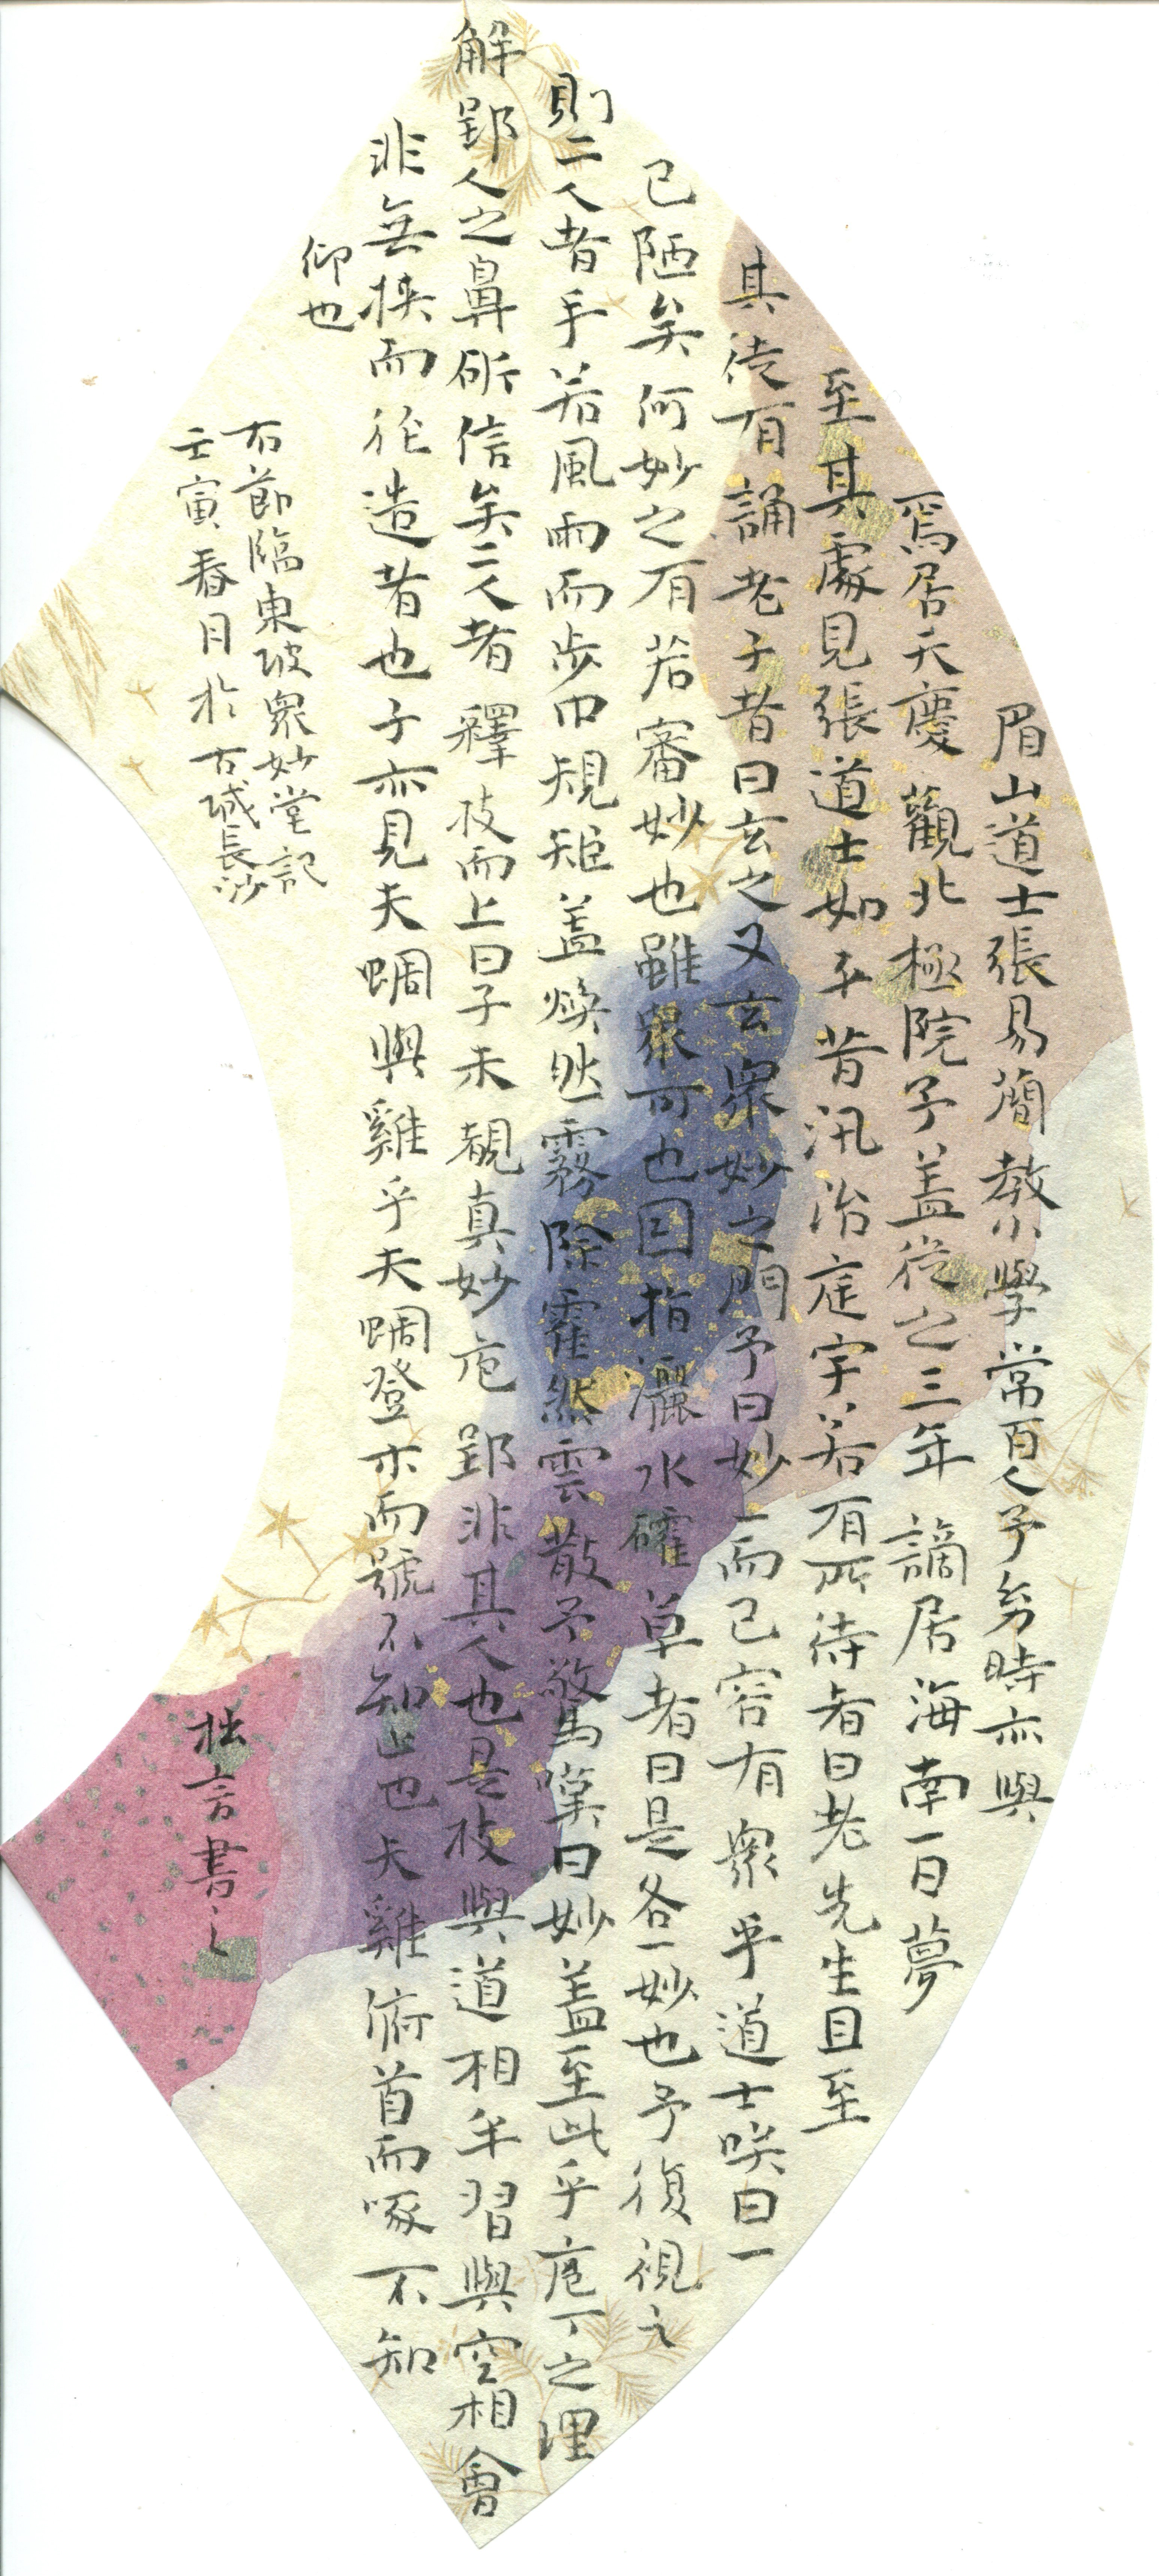 眉山道士張易簡教小學常百人予幼時亦與
焉居天慶觀北極院予蓋從之三年謫居海南一日夢
至其處見張道士如平昔汛治庭宇若有所待者曰老先生且至
其徒有誦老子者曰玄之又玄眾妙之門予曰妙一而已容有眾乎道士咲曰一
已陋矣何妙之有若審妙也雖眾可也因指灑水草者曰是各一妙也予復視之
則二人者手若風雨而步中規矩蓋煥然霧除霍然雲散予驚嘆曰妙蓋至此乎庖丁之理
解郢人之鼻斫信矣二人者釋技而上曰子未覩真妙庖郢非其人也是技與道相半習與空相會
非無挾而徑造者也子亦見夫蜩與雞乎夫蜩登木而號不知止也夫雞俯首而啄不知
仰也
右節臨東坡眾妙堂記
壬寅春月於古城長沙
拙言書之